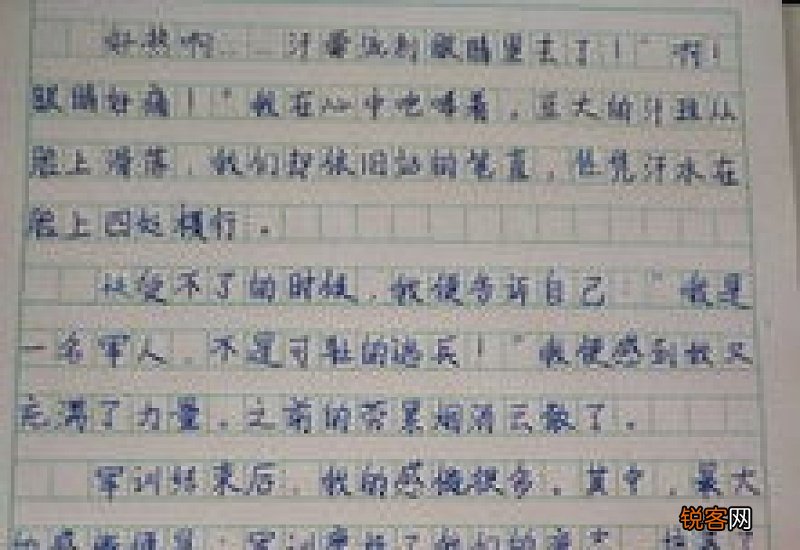 好热啊……汗要流到眼睛里去了！”啊！
眼睛好痛！”我在心中咆哮着，豆大的汗珠从
脸上滑落，我们却依旧站的笔直，任凭汗水在
脸上四处横行。
忍受不了的时候，我便告诉自己：“我是
一名军人，不是可耻的逃兵！”我便感到我又
充满了力量，之前的劳累烟消云散了。
军训结束后，我的感慨很多。其中，最大
的感慨便是：军训磨练了我们的意志，
锐客网